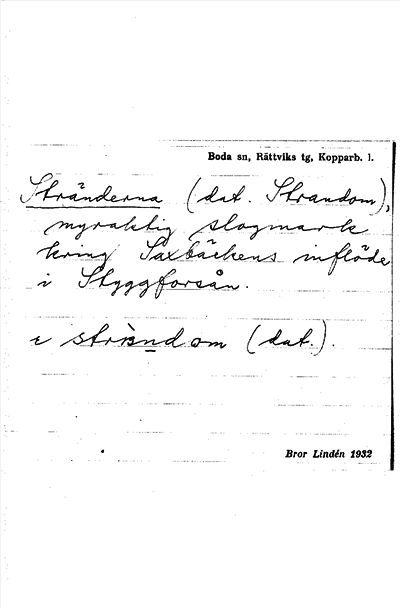 Boda sn, Rättviks tg, Kopparb. l.
Stränderna (dat. Strandom),
myraktig slogmark
kring Saxbäckens inflöde
i Styggforsån.
(dat.).
Bror Lindén 1932